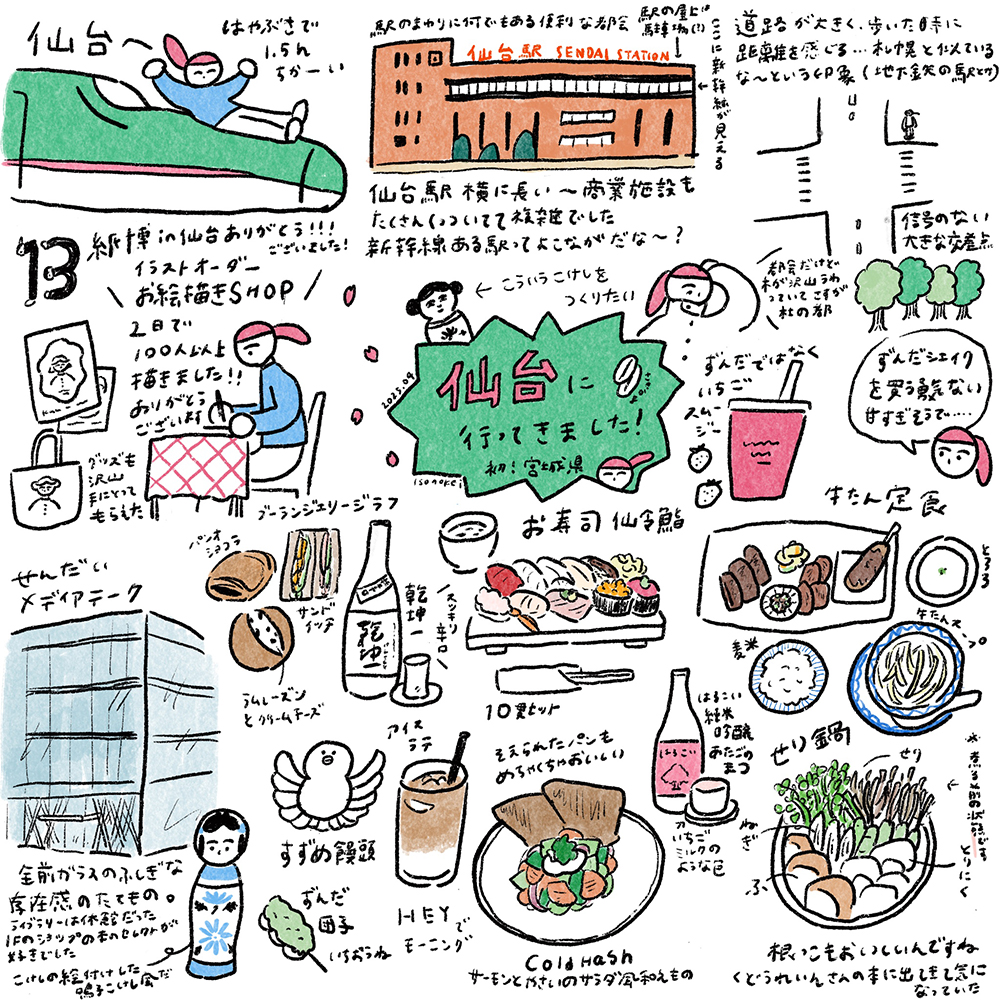 仙台へ
はやぶさで
1.5h
ちかーい
駅のまわりに何でもある便利な都会
駅の屋上に
駐車場(!)
仙台駅 SENDAI STATION
←ここに新幹線が見える
仙台駅 横に長い〜商業施設も
たくさんくっついてて複雑でした
新幹線ある駅ってよこながだな〜?
道路が大きく、歩いた時に
距離を感じる…札幌と似ている
な〜という印象(地下鉄の駅とか)
信号のない
大きな交差点
都会だけど
木が沢山うわ
っていてさすが
杜の都
13
紙博 in 仙台ありがとう!!!
ございました!
イラストオーダー
お絵描きSHOP
2日で
100人以上
描きました!!
ありがとう
ございます
グッズも
沢山
手にとって
もらえた
←こういうこけしを
つくりたい
2023.09
仙台に
行ってきました!
初!宮城県
isonokei
ずんだではなく
いちご
スムージー
ずんだシェイク
を買う勇気ない
甘すぎそうで……
ブーランジェリージラフ
パンオ
ショコラ
サンド
イッチ
ラムレーズン
とクリームチーズ
乾坤一
乾坤一
スッキリ辛口
お寿司 仙令鮨
10貫セット
牛たん定食
とろろ
麦米
牛たんスープ
せんだい
メディアテーク
全前ガラスのふしぎな
存在感のたてもの。
ライブラリーは休館だった
1Fのショップの本のセレクトが
好きでした
こけしの絵付けした
鳴子こけし風だ
すずめ饅頭
ずんだ
団子
いちおうね
アイス
ラテ
HEYで
モーニング
そえられたパンも
めちゃくちゃおいしい
Cold Hash
サーモンとやさいのサラダ風和えもの
はるこい
純米
吟醸
あたごのまつ
はるこい
いちご
ミルクの
ような色
せり鍋
せり
ねぎ
ふ
とりにく
※煮る前の状態です
根っこもおいしいんですね
くどうれいんさんの本に出てきて気に
なっていた